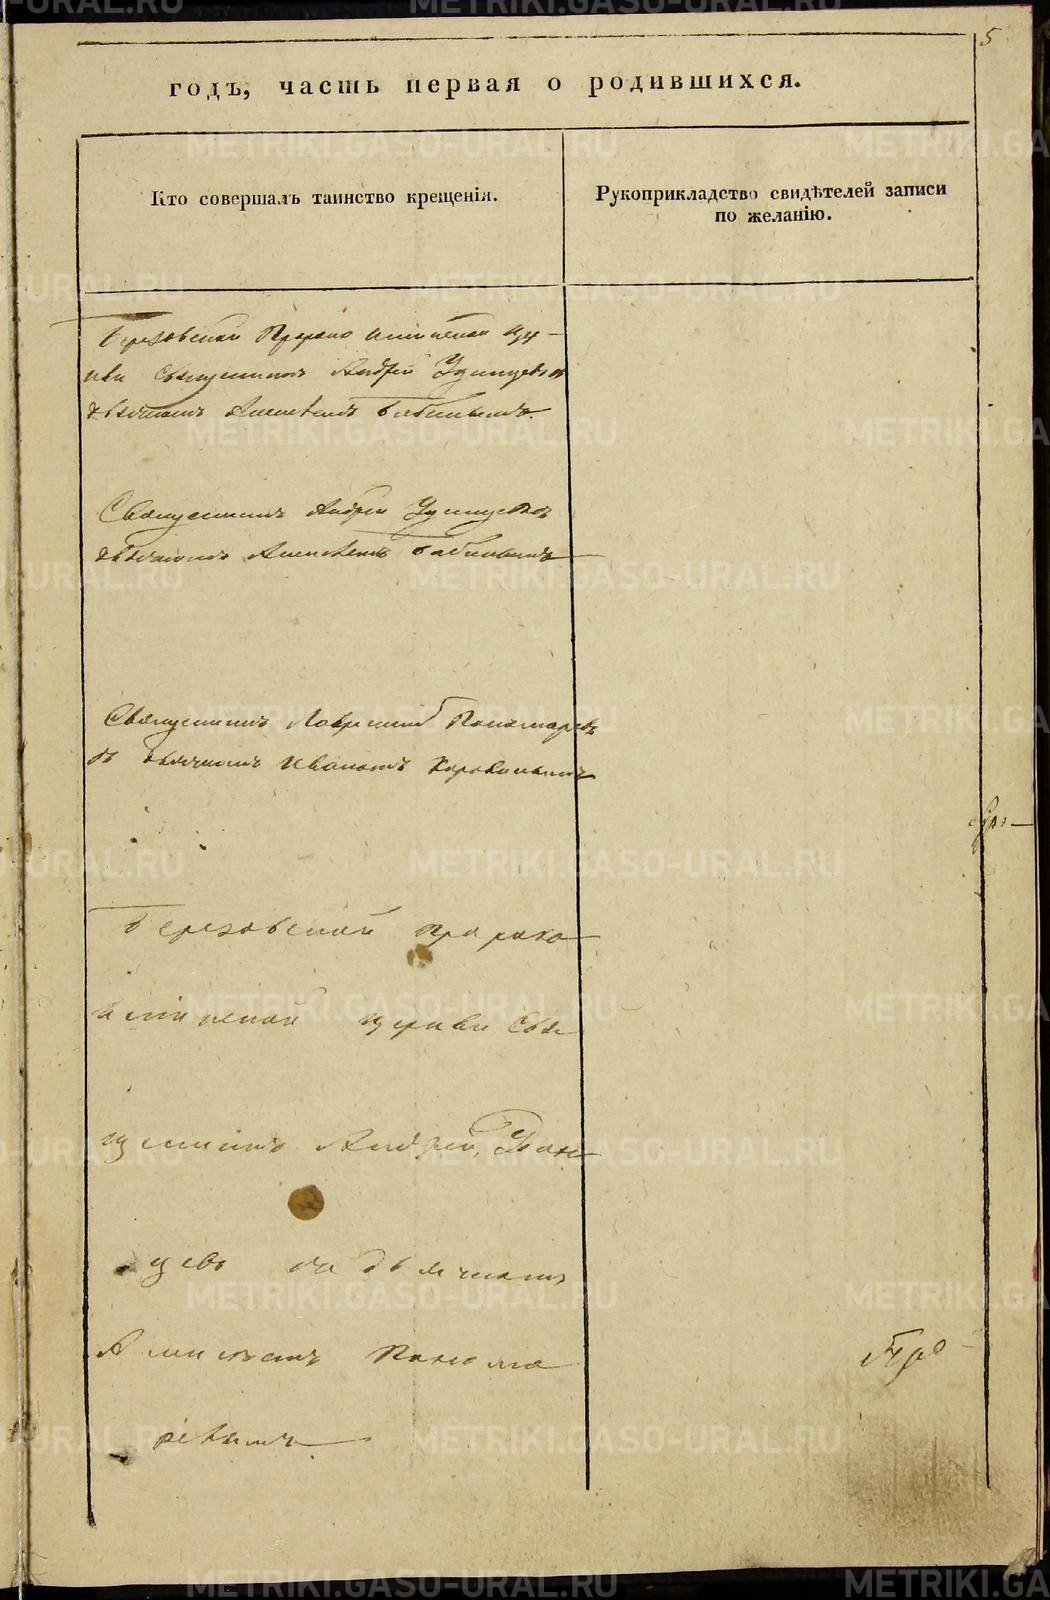 5
годъ, часть первая о родившихся.
Кто совершалъ таинство крещенія.
Рукоприкладство свидѣтелей записи
по желанію.
Березовской Пророко Ильинской цер-
кви Священникъ Андрей
дьячкомъ Алексѣемъ Бабинымъ
Священникъ Андрей
дьячкомъ Алексѣемъ Бабинымъ
Священникъ Лаврентій Пономаревъ
съ дьячкомъ Иваномъ Коровинымъ
Березовской Пророко
Ильинской церкви Свя
щенникъ Андрей
цевъ съ дьячкомъ
Алексѣемъ Понома
ревымъ
METRIKI.GASO-URAL.RU